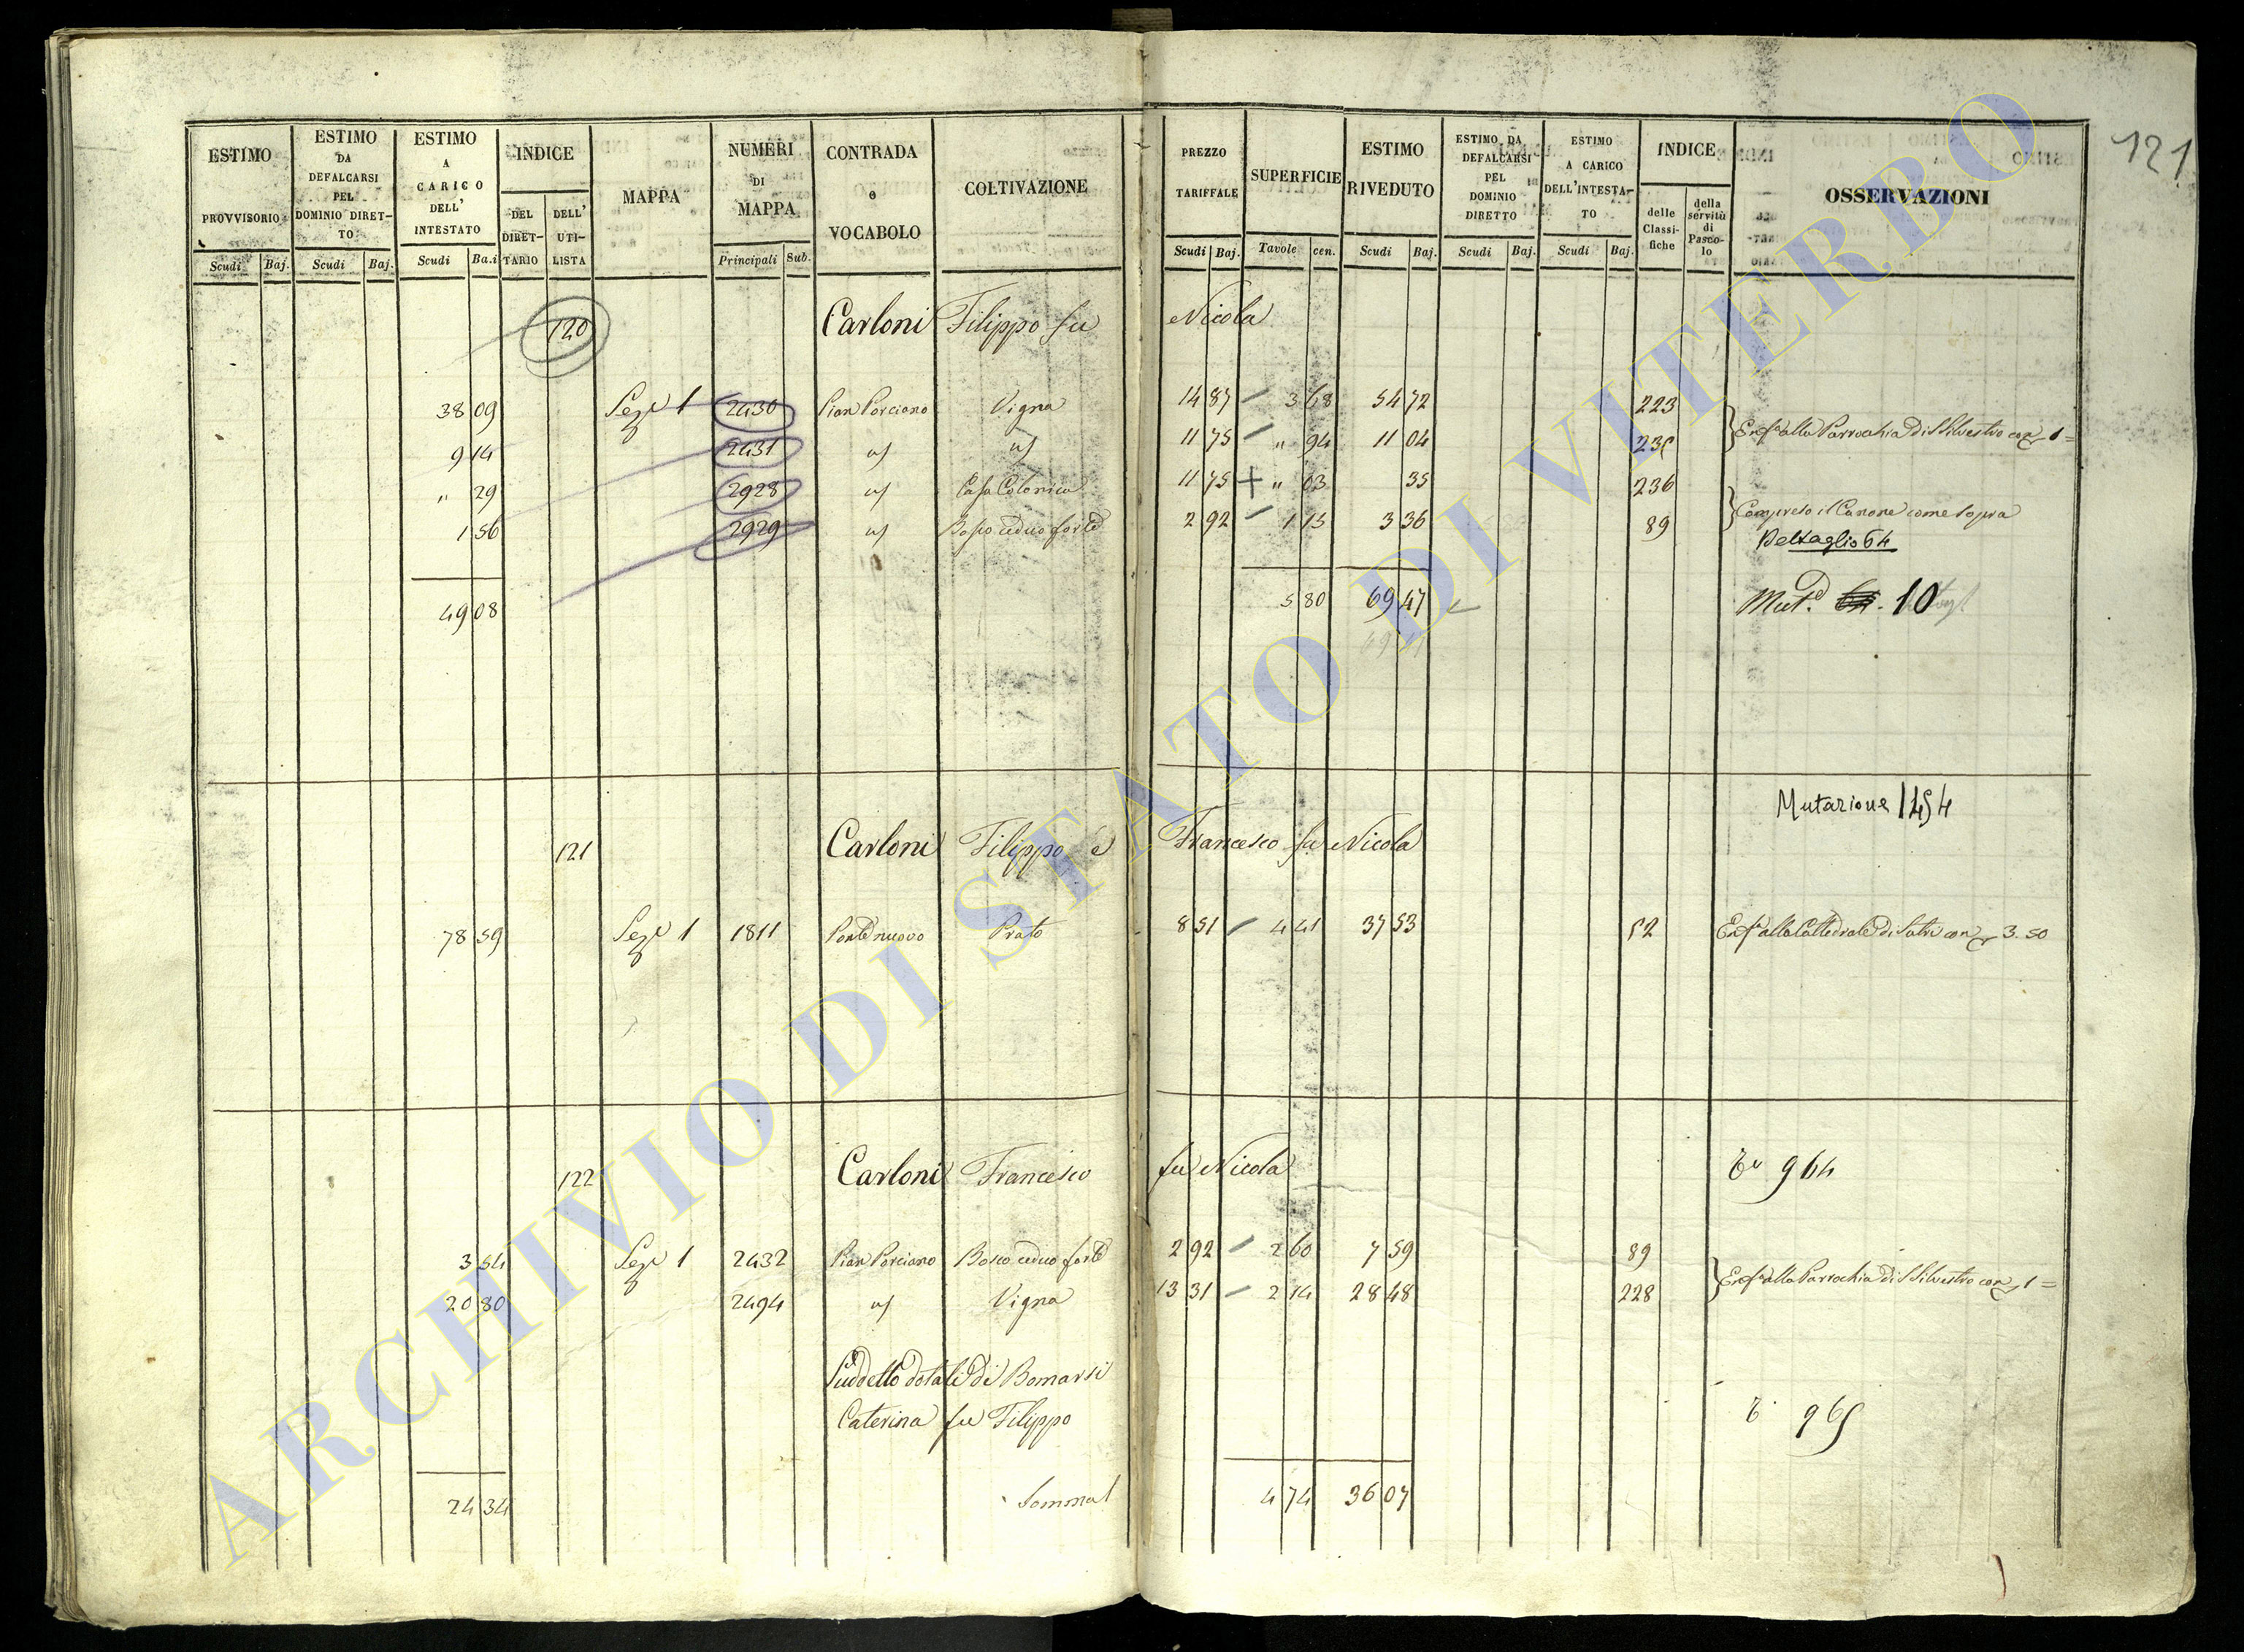 121
ESTIMO PROVVISORIO Scudi Baj.
ESTIMO DA DEFALCARSI PEL DOMINIO DIRET-TO Scudi Baj.
ESTIMO A CARICO DELL' INTESTATO Scudi Ba.i
INDICE DEL DIRET-TARIO DELL' UTI-LISTA
MAPPA
NUMERI DI MAPPA Principali Sub.
CONTRADA e VOCABOLO
COLTIVAZIONE
PREZZO TARIFFALE Scudi Baj.
SUPERFICIE Tavole cen.
ESTIMO RIVEDUTO Scudi Baj.
ESTIMO DA DEFALCARSI PEL DOMINIO DIRETTO Scudi Baj.
ESTIMO A CARICO DELL'INTESTA-TO Scudi Baj.
INDICE delle Classi-fiche della servitù di Pasco-lo
OSSERVAZIONI
120 Carloni Filippo fu Nicola
38 09 Sez 1 2430 Pian Porciano Vigna 14 87 3 68 54 72 223
9 14 2431 11 75 " 94 11 04
Enfa alla Parrochia di S Silvestro con 1 =
" 29 2928 Casa Colonica 11 75 " 03 35 236
1 56 2929 Bosco ceduo forte 2 92 1 15 3 36 89
Compreso il Canone come sopra
Dettaglio 64
49 08 5 80 69 47
Mut. 10
Mutazione 1454
121 Carloni Filippo e Francesco fu Nicola
78 59 Sez 1 1811 Ponte nuovo Prato 8 51 4 41 37 53 52 Enfa alla Cattedrale di Sutri con 3.50
122 Carloni Francesco fu Nicola 964
3 54 Sez 1 2432 Pian Porciano Bosco ceduo forte 2 92 2 60 7 59 89
20 80 2494 Vigna 13 31 2 14 28 48 228
Enfa alla Parrochia di S Silvestro con 1 =
Suddetto dotale di Bomarsi
Caterina fu Filippo
965
24 34 Somma 4 74 36 07
ARCHIVIO DI STATO DI VITERBO